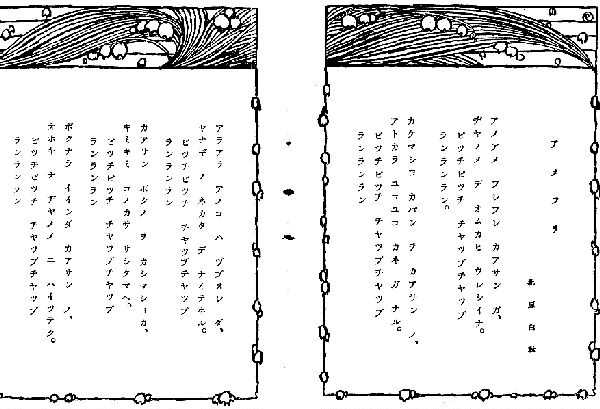 アメフリ
北原白秋
アメアメ フレフレ カアサン ガ、
ヂヤノメ デ オムカヒ ウレシイナ。
ピツチピツチ チヤツプチヤツプ
ランランラン。
カケマシヨ カバン ヲ カアサン ノ、
アトカラ ユコユコ カネ ガ ナル。
ピツチピツチ チヤツプチヤツプ
ランランラン
アラアラ アノコ ハ ヅブヌレ ダ、
ヤナギ ノ ネカタ デ ナイテヰル。
ピツチピツチ チヤツプチヤツプ
ランランラン
カアサン ボクノ ヲ カシマシヨカ、
キミキミ コノカサ サシタマヘ、
ピツチピツチ チヤツプチヤツプ
ランランラン
ボクナラ イインダ カアサン ノ、
オホキ ナ ヂヤノメ ニ ハイツテク。
ピツチピツチ チヤツプチヤツプ
ランランラン